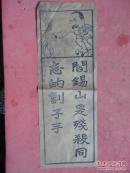 閻錫山是殘殺同
志的劊子手